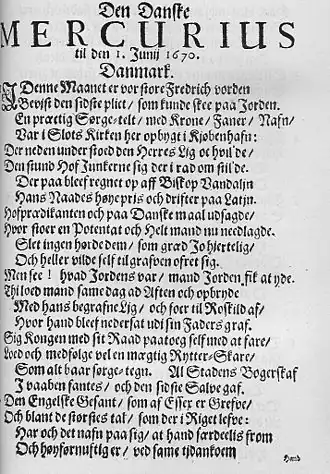 Den Danske
MERCURIUS
til den 1. Junij 1670.
Danmark.
I Denne Maanet er vor store Fredrich vorden
Bevjst den sidste plict / som kunde skee paa Jorden.
En prættig Sørge-telt / med Krone / Faner / Nafn /
Var i Slots Kirken her opbygt i Kjøbenhafn:
Der neden under stoed den Herres Lig oc hvil'de /
Den stund Hof Junkerne sig der i rad om stil'de.
Der paa bleef regnet op aff Biskop Vandaljn
Hans Naades høye pris och drifter paa Latjn.
Hofprædikanten och paa Danske maal udsagde /
Hvor stoer en Potentat och Helt mand nu nedlagde.
Slet ingen hørde dem / som græd Jo hjertelig /
Och heller vilde self til grafven ofret sig.
Men see! hvad Jordens var / mand Jorden fik at yde.
Thi loed mand same dag ad Aften och opbryde
Med hans begrafne Lig / och foer til Roskild af /
Hvor hand bleef nedersat udi sin Faders graf.
Sig Kongen med sit Raad paatoeg self med at fare /
Loed och medfølge vel en mægtig Rytter-Skare /
Som alt baar sørge-tegn. Al Stadens Bogerskaf
I vaaben fantes / och den sidste Salve gaf.
Den Engelske Gesant / som af Essex er Grefve /
Och blant de størstes tal / som der i Riget lefve:
Har och det nafn paa sig / at hand færdelis from
Och høyfornuftig er / ved same tid ankoem
Hand